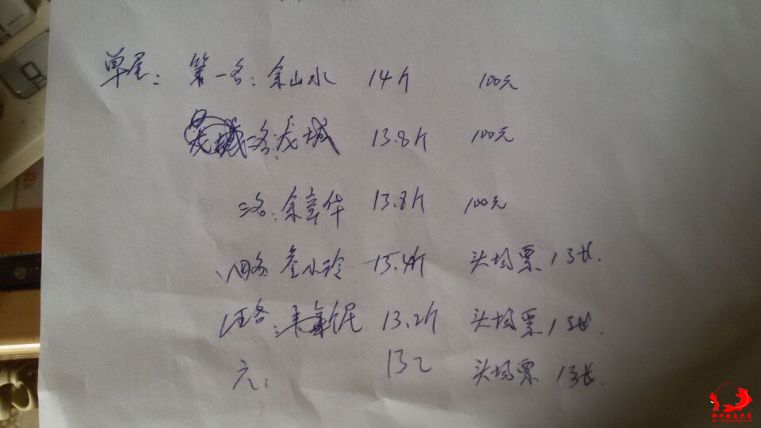 单尾: 第一名: 余山水 14斤 100元
二名: 龙城 13.8斤 100元
二名: 余章华 13.8斤 100元
四名 小玲 13.4斤 头场票1张.
五名: 13.2斤 头场票1张.
六: 13.2 头场票1张.